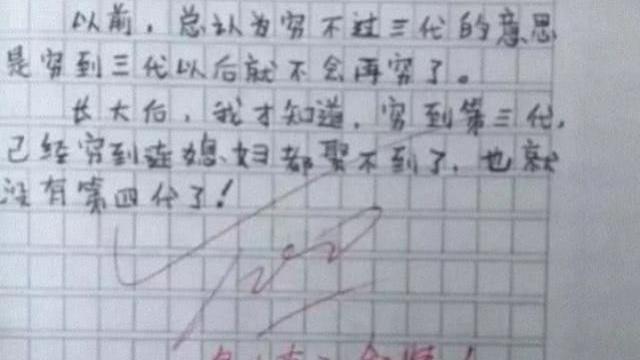 以前，总认为穷不过三代的意思
是穷到三代以后就不会再穷了。
长大后，我才知道，穷到第三代，
已经穷到连媳妇都娶不到了，也就
没有第四代了！
100